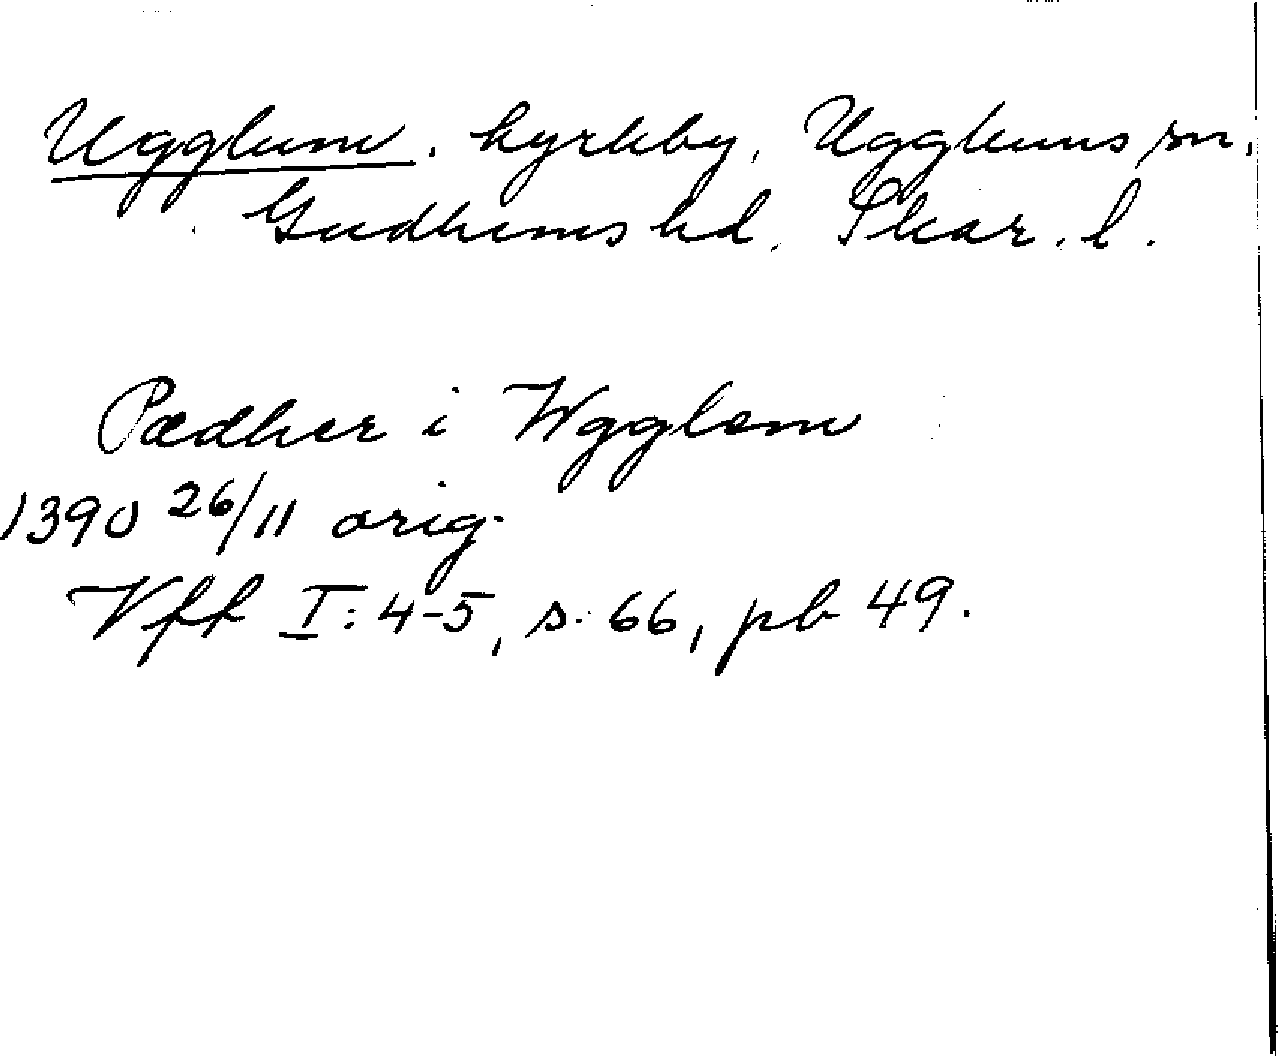 Ugglum. kyrkby, Ugglums sn,
Gudhems hd. Skar. l.
Pædher i Wgglem
1390 26/11 orig.
Vff I: 4-5, s. 66, pb 49.